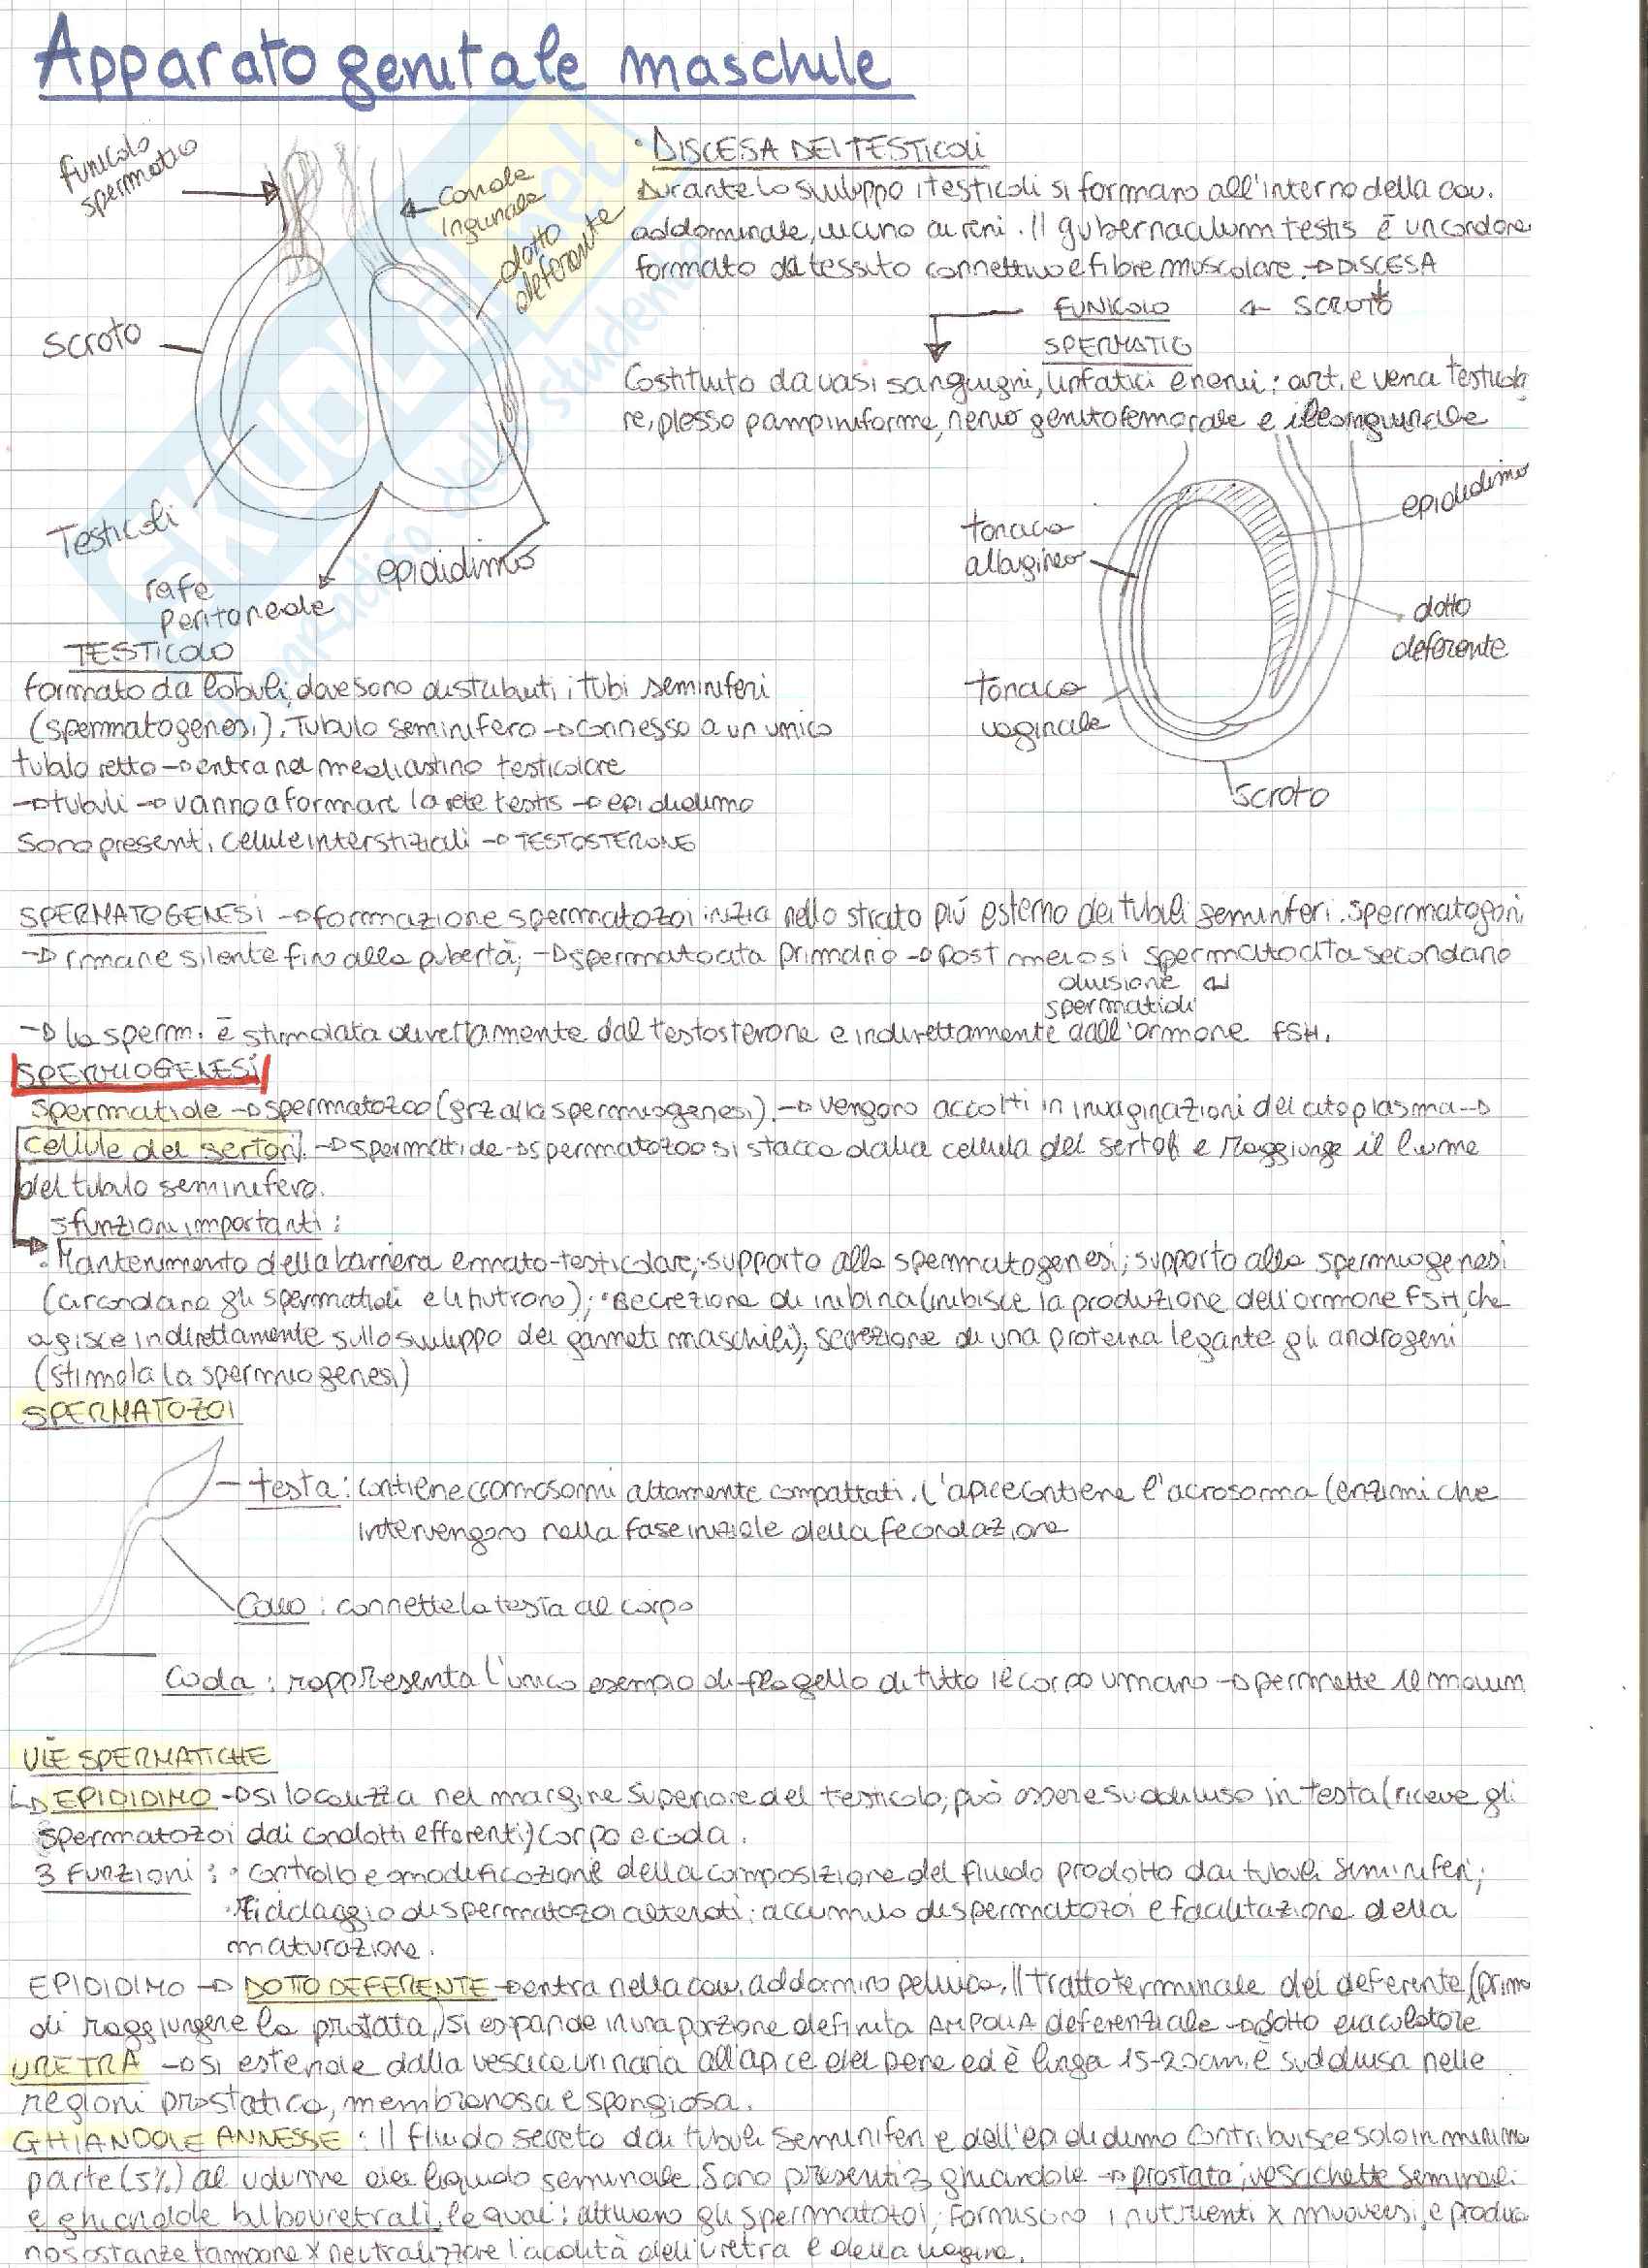 Apparato genitale maschile
funicolo
spermatico
canale
inguinale
dotto
deferente
Scroto
Testicoli
rafe
peritoneale
epididimo
• DISCESA DEI TESTICOLI
Durante lo sviluppo i testicoli si formano all'interno della cav.
addominale, vicino ai reni. Il gubernaculum testis è un cordone
formato da tessuto connettivo e fibre muscolare. → DISCESA
FUNICOLO ← SCROTO
SPERMATIC
Costituito da vasi sanguigni, linfatici e nervi: art. e vena testicola
re, plesso pampiniforme, nervo genitofemorale e ileoinguinale
tonaca
allaginea
epididimo
dotto
deferente
tonaca
vaginale
scroto
TESTICOLO
formato da lobuli, dove sono distribuiti i tubi seminiferi
(spermatogenesi). Tubulo seminifero → connesso a un unico
tubulo retto → entra nel mediastino testicolare
→ tubuli → vanno a formare la rete testis → epididimo
Sono presenti cellule interstiziali → TESTOSTERONE
SPERMATOGENESI → formazione spermatozoi inizia nello strato più esterno dei tubuli seminiferi. Spermatogoni
→ rimane silente fino alla pubertà; → spermatocita primario → post meiosi spermatocita secondario
divisione ↵
spermatidi
→ la sperm. è stimolata direttamente dal testosterone e indirettamente dall'ormone FSH.
SPERMIOGENESI
Spermatide → spermatozoo (grz alla spermiogenesi). → vengono accolti in invaginazioni del citoplasma →
cellule del sertoli. → spermatide → spermatozoo si stacca dalla cellula del sertoli e raggiunge il lume
del tubulo seminifero.
5 funzioni importanti:
• Mantenimento della barriera emato-testicolare; • supporto alla spermatogenesi; supporto alla spermiogenesi
(circondano gli spermatidi e li nutrono); • Secrezione di inibina (inibisce la produzione dell'ormone FSH, che
agisce indirettamente sullo sviluppo dei gameti maschili); secrezione di una proteina legante gli androgeni
(stimola la spermiogenesi)
SPERMATOZOI
testa: contiene cromosomi altamente compattati. L'apice contiene l'acrosoma (enzimi che
intervengono nella fase iniziale della fecondazione
Collo: connette la testa al corpo
Coda: rappresenta l'unico esempio di flagello di tutto il corpo umano → permette il movim
VIE SPERMATICHE
↳ EPIDIDIMO → si localizza nel margine superiore del testicolo; può essere suddiviso in testa (riceve gli
spermatozoi dai condotti efferenti) corpo e coda.
3 Funzioni: • controllo e modificazione della composizione del fluido prodotto dai tubuli seminiferi;
• Riciclaggio di spermatozoi alterati; accumulo di spermatozoi e facilitazione della
maturazione.
EPIDIDIMO → DOTTO DEFERENTE → entra nella cav. addomino pelvica. Il tratto terminale del deferente (prima
di raggiungere la prostata) si espande in una porzione definita AMPOLLA deferenziale → dotto eiaculatore
URETRA → si estende dalla vescica urinaria all'apice del pene ed è lunga 15-20cm. è suddivisa nelle
regioni prostatica, membranosa e spongiosa.
GHIANDOLE ANNESSE: Il fluido secreto dai tubuli seminiferi e dell'epididimo contribuisce solo in minima
parte (5%) al volume del liquido seminale. Sono presenti 3 ghiandole → prostata, vescichette seminali
e ghiandole bulbouretrali, le quali: attivano gli spermatozoi, forniscono i nutrienti x muoversi, e produco
no sostanze tampone x neutralizzare l'acidità dell'uretra e della vagina.